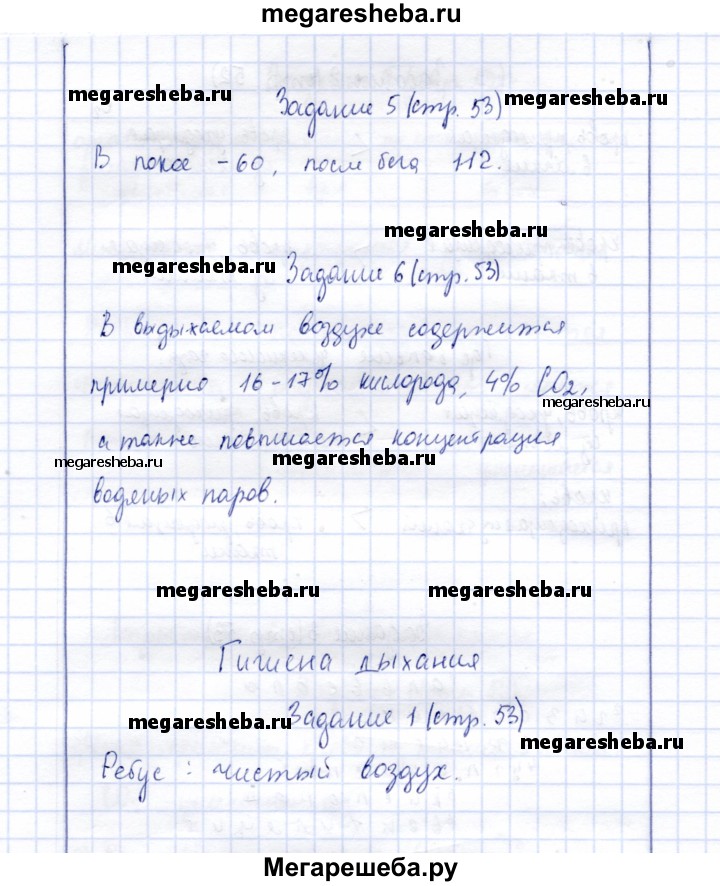 megaresheba.ru
megaresheba.ru
Задание 5 (стр. 53)
megaresheba.ru
В покое - 60, после бега 112.
megaresheba.ru
megaresheba.ru
Задание 6 (стр. 53)
В выдыхаемом воздухе содержится
примерно 16-17% кислорода, 4% CO2,
megaresheba.ru
а также повышается концентрация
megaresheba.ru
megaresheba.ru
водяных паров.
megaresheba.ru
megaresheba.ru
Гигиена дыхания
Задание 1 (стр. 53)
megaresheba.ru
megaresheba.ru
Ребус: чистый воздух.
Мегарешеба.ру